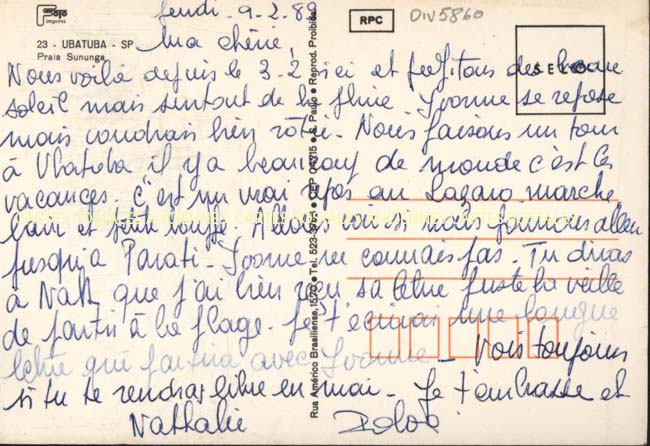 foto
impress
23 - UBATUBA - SP
Praia Sununga
RPC
DIV5860
SELO
Rua Américo Brasiliense, 1570 • Tel. 523-3763 • CEP 04715 • S. Paulo • Reprod. Proibida
Jeudi 9.2.89
Ma chérie,
Nous voilà depuis le 3-2 ici et profitons du bonne
soleil mais surtout de la pluie. Yvonne se repose
mais voudrais bien rôtir. Nous faisons un tour
à Ubatuba il y a beaucoup de monde c'est les
vacances. C'est un vrai repos au Lazaro marche
bain et petite bouffe. Allons voir si nous pouvons aller
jusqu'à Parati. Yvonne ne connais pas. Tu diras
à Nath que j'ai bien reçu sa lettre juste la veille
de partir à la plage. Je t'écrirais une longue
lettre qui partira avec Yvonne - Vois toujours
si tu te rendras libre en mai. Je t'embrasse et
Nathalie